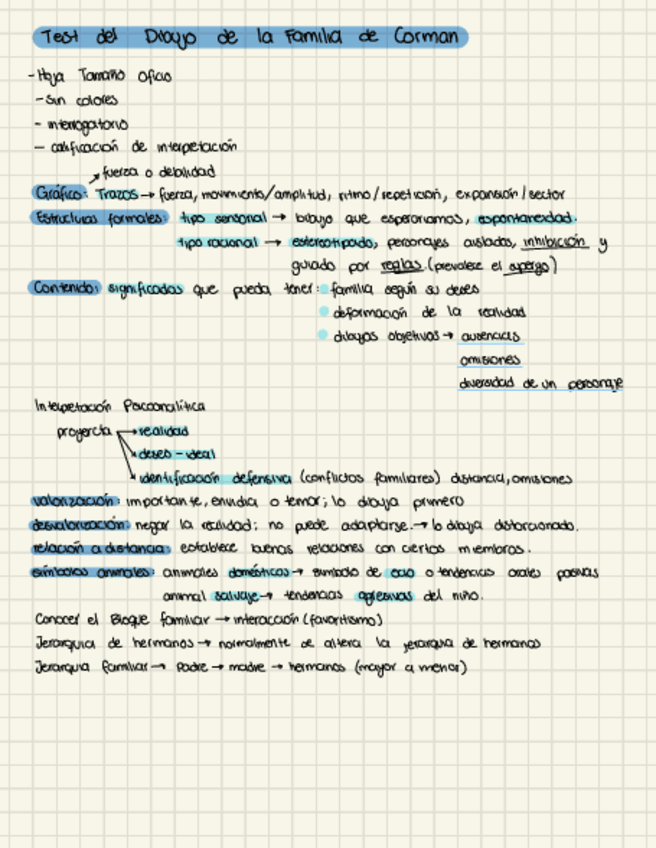 Test del Dibujo de la Familia de Corman
- Hoja Tamaño Oficio
- Sin colores
- interrogatorio
- calificación de interpretación
fuerza o debilidad
Gráfico: Trazos → fuerza, movimiento/amplitud, ritmo/repetición, expansión/sector
Estructuras formales: tipo sensorial → dibujo que esperaríamos, espontaneidad.
tipo racional → estereotipado, personajes aislados, inhibición y
guiado por reglas. (prevalece el superyo)
Contenido: significados que pueda tener: • familia según su deseo
• deformación de la realidad
• dibujos objetivos → ausencias
omisiones
diversidad de un personaje
Interpretación Psicoanalítica
proyecta → realidad
→ deseo - ideal
→ identificación defensiva (conflictos familiares) distancia, omisiones
valorización: importante, envidia o temor; lo dibuja primero
desvalorización: negar la realidad; no puede adaptarse. → lo dibuja distorcionado.
relación a distancia: establece buenas relaciones con ciertos miembros.
símbolos animales: animales domésticos → símbolo de ocio o tendencias orales pasivas
animal salvaje → tendencias agresivas del niño.
Conocer el Bloque familiar → interacción (favoritismo)
Jerarquía de hermanos → normalmente se altera la jerarquía de hermanos
Jerarquía familiar → Padre → madre → hermanos (mayor a menor)